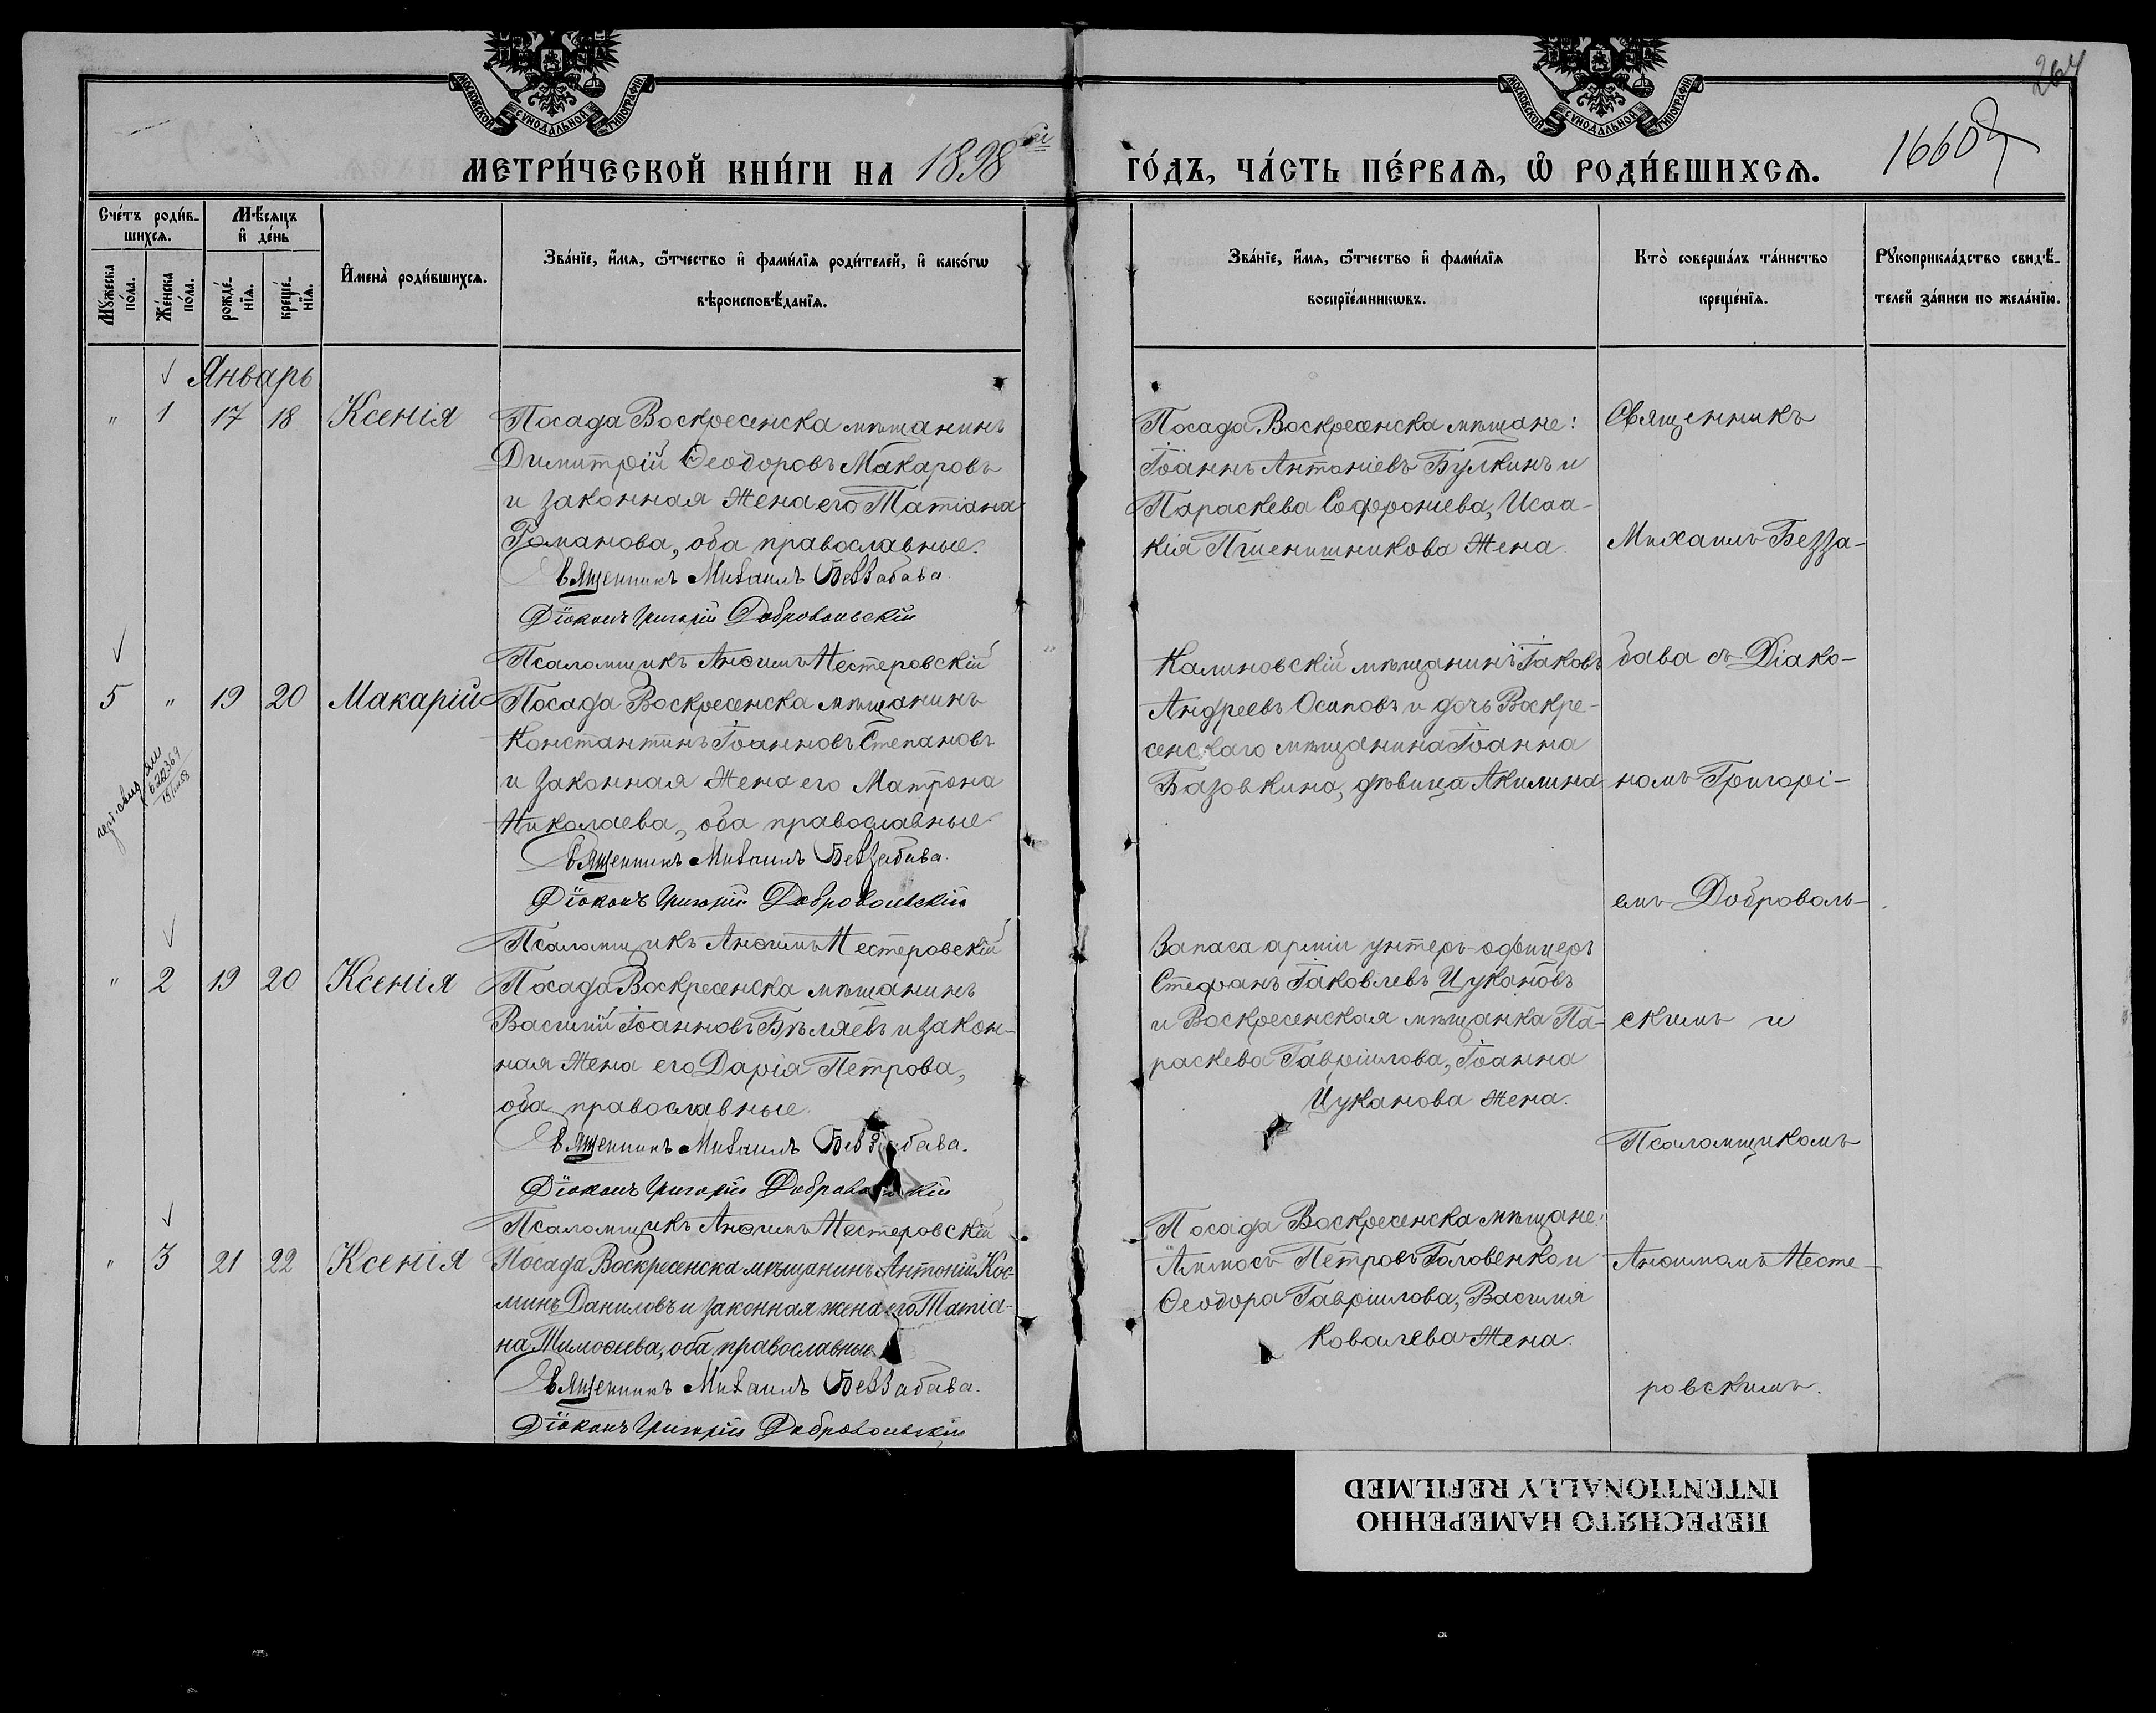 264
МОСКОВСКОЙ СѴНОДАЛЬНОЙ ТИПОГРАФІИ
МОСКОВСКОЙ СѴНОДАЛЬНОЙ ТИПОГРАФІИ
МЕТРИ́ЧЕСКОЙ КНИ́ГИ НА 1898
ГО́ДЪ, ЧА́СТЬ ПЕ́РВАѦ, Ѽ РОДИ́ВШИХСѦ.
1660
Сче́тъ роди́в-
шихсѧ.
Мѣ́сѧцъ
и҆ де́нь
Мꙋ́жеска
по́ла.
Же́нска
по́ла.
рожде́-
нїѧ.
креще́-
нїѧ.
И҆мена̀ роди́вшихсѧ.
Зва́нїе, и҆́мѧ, ѻ҆́тчество и҆ фами́лїѧ роди́телей, и҆ како́гѡ
вѣроисповѣ́данїѧ.
Зва́нїе, и҆́мѧ, ѻ҆́тчество и҆ фами́лїѧ
воспрїе́мникѡвъ.
Кто̀ соверша́лъ та́инство
креще́нїѧ.
Рꙋкоприкла́дство свидѣ́-
телей за́писи по жела́нїю.
Январь
" 1 17 18 Ксенія
Посада Воскресенска мѣщанинъ
Димитрій Ѳеодоровъ Макаровъ
и законная жена его Татіана
Романова, оба православные.
Священникъ Михаилъ Беззабава.
Діаконъ Григорій Добровольскій
Псаломщикъ Анѳимъ Нестеровскій
Посада Воскресенска мѣщане:
Іоаннъ Антоніевъ Булкинъ и
Параскева Софроніева, Исаа-
кія Пшенишникова жена.
5 " 19 20 Макарій
Посада Воскресенска мѣщанинъ
Константинъ Іоанновъ Степановъ
и законная жена его Матрона
Николаева, оба православные
Священникъ Михаилъ Беззабава.
Діаконъ Григорій Добровольскій
Псаломщикъ Анѳимъ Нестеровскій
Калиновскій мѣщанинъ Іаковъ
Андреевъ Осиповъ и дочь Воскре-
сенскаго мѣщанина Іоанна
Базовкина, дѣвица Акилина
" 2 19 20 Ксенія
Посада Воскресенска мѣщанинъ
Василій Іоанновъ Бѣляевъ и закон-
ная жена его Дарія Петрова,
оба православные.
Священникъ Михаилъ Беззабава.
Діаконъ Григорій Добровольскій
Псаломщикъ Анѳимъ Нестеровскій
Запаса арміи унтеръ-офицеръ
Стефанъ Іаковлевъ Цукановъ
и Воскресенская мѣщанка Па-
раскева Гавріилова, Іоанна
Цуканова жена.
" 3 21 22 Ксенія
Посада Воскресенска мѣщанинъ Антоній Кос-
минъ Даниловъ и законная жена его Татіа-
на Тимоѳеева, оба православные
Священникъ Михаилъ Беззабава.
Діаконъ Григорій Добровольскій
Посада Воскресенска мѣщане:
Аммосъ Петровъ Головенко и
Ѳеодора Гавріилова, Василія
Ковалева жена.
Священникъ
Михаилъ Безза-
бава съ Діако-
номъ Григорі-
емъ Доброволь-
скимъ и
Псаломщикомъ
Анѳимомъ Несте-
ровскимъ.
ПЕРЕСНЯТО НАМЕРЕННО
INTENTIONALLY REFILMED